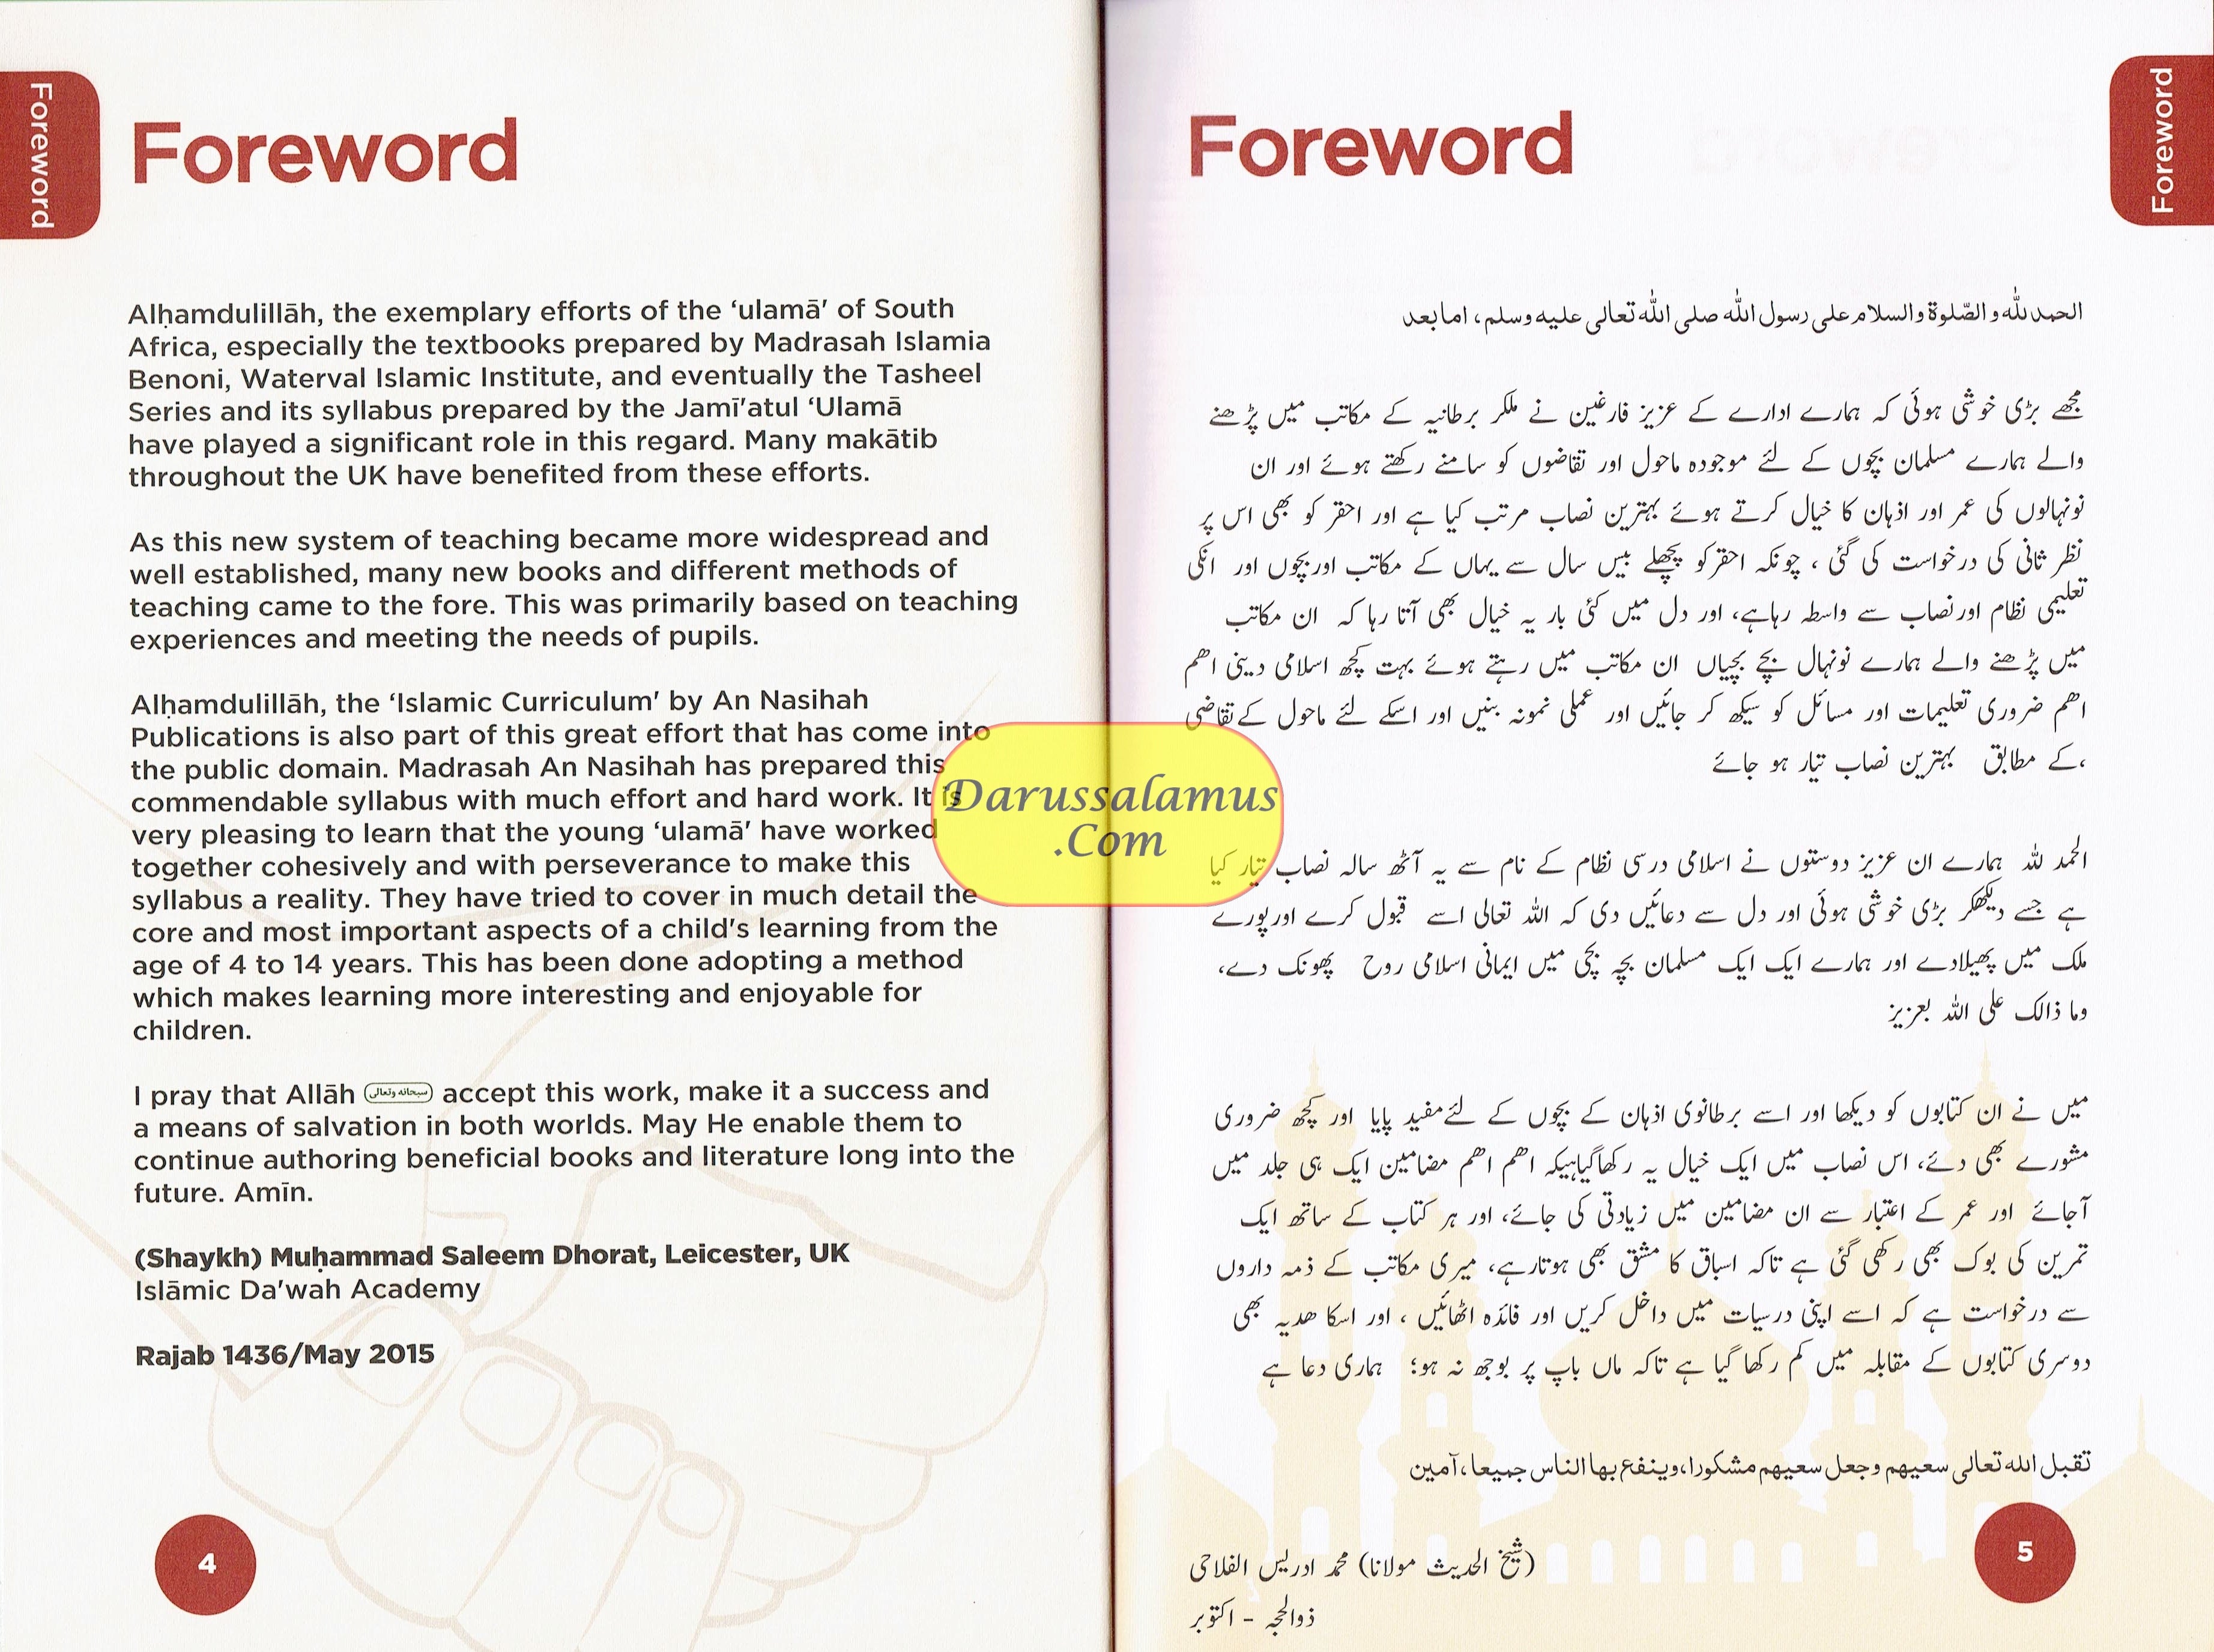 Foreword
Foreword
Alḥamdulillāh, the exemplary efforts of the ‘ulamā’ of South
Africa, especially the textbooks prepared by Madrasah Islamia
Benoni, Waterval Islamic Institute, and eventually the Tasheel
Series and its syllabus prepared by the Jamī’atul ‘Ulamā
have played a significant role in this regard. Many makātib
throughout the UK have benefited from these efforts.
As this new system of teaching became more widespread and
well established, many new books and different methods of
teaching came to the fore. This was primarily based on teaching
experiences and meeting the needs of pupils.
Alḥamdulillāh, the ‘Islamic Curriculum’ by An Nasihah
Publications is also part of this great effort that has come into
the public domain. Madrasah An Nasihah has prepared this
commendable syllabus with much effort and hard work. It is
very pleasing to learn that the young ‘ulamā’ have worked
together cohesively and with perseverance to make this
syllabus a reality. They have tried to cover in much detail the
core and most important aspects of a child’s learning from the
age of 4 to 14 years. This has been done adopting a method
which makes learning more interesting and enjoyable for
children.
I pray that Allāh سبحانه وتعالى accept this work, make it a success and
a means of salvation in both worlds. May He enable them to
continue authoring beneficial books and literature long into the
future. Amīn.
(Shaykh) Muḥammad Saleem Dhorat, Leicester, UK
Islāmic Da’wah Academy
Rajab 1436/May 2015
4
Darussalamus
.Com
Foreword
Foreword
الحمد للّٰه و الصّلوة والسلام على رسول اللّٰه صلى اللّٰه تعالى عليه وسلم، اما بعد
مجھے بڑی خوشی ہوئی کہ ہمارے ادارے کے عزیز فارغین نے ملکر برطانیہ کے مکاتب میں پڑھنے
والے ہمارے مسلمان بچوں کے لئے موجودہ ماحول اور تقاضوں کو سامنے رکھتے ہوئے اور ان
نونہالوں کی عمر اور اذہان کا خیال کرتے ہوئے بہترین نصاب مرتب کیا ہے اور احقر کو بھی اس پر
نظر ثانی کی درخواست کی گئی ، چونکہ احقرکو پچھلے بیس سال سے یہاں کے مکاتب اوربچوں اور انکی
تعلیمی نظام اورنصاب سے واسطہ رہاہے، اور دل میں کئی بار یہ خیال بھی آتا رہا کہ ان مکاتب
میں پڑھنے والے ہمارے نونہال بچے بچیاں ان مکاتب میں رہتے ہوئے بہت کچھ اسلامی دینی اھم
اھم ضروری تعلیمات اور مسائل کو سیکھ کر جائیں اور عملی نمونہ بنیں اور اسکے لئے ماحول کےتقاضی
،کے مطابق بہترین نصاب تیار ہو جائے
الحمد للہ ہمارے ان عزیز دوستوں نے اسلامی درسی نظام کے نام سے یہ آٹھ سالہ نصاب تیار کیا
ہے جسے دیکھکر بڑی خوشی ہوئی اور دل سے دعائیں دی کہ اللہ تعالی اسے قبول کرے اورپورے
ملک میں پھیلادے اور ہمارے ایک ایک مسلمان بچہ بچی میں ایمانی اسلامی روح پھونک دے،
وما ذالک علی اللہ بعزیز
میں نے ان کتابوں کو دیکھا اور اسے برطانوی اذہان کے بچوں کے لئےمفید پایا اور کچھ ضروری
مشورے بھی دئے، اس نصاب میں ایک خیال یہ رکھاگیاہیکہ اھم اھم مضامین ایک ہی جلد میں
آجائے اور عمر کے اعتبار سے ان مضامین میں زیادتی کی جائے، اور ہر کتاب کے ساتھ ایک
تمرین کی بوک بھی رکھی گئی ہے تاکہ اسباق کا مشق بھی ہوتارہے، میری مکاتب کے ذمہ داروں
سے درخواست ہے کہ اسے اپنی درسیات میں داخل کریں اور فائدہ اٹھائیں ، اور اسکا ھدیہ بھی
دوسری کتابوں کے مقابلہ میں کم رکھا گیا ہے تاکہ ماں باپ پر بوجھ نہ ہو؛ ہماری دعا ہے
تقبل الله تعالى سعيهم وجعل سعيهم مشكورا،وينفع بها الناس جميعا،آمين
(شیخ الحدیث مولانا) محمد ادریس الفلاحی
ذوالحجہ - اکتوبر
5